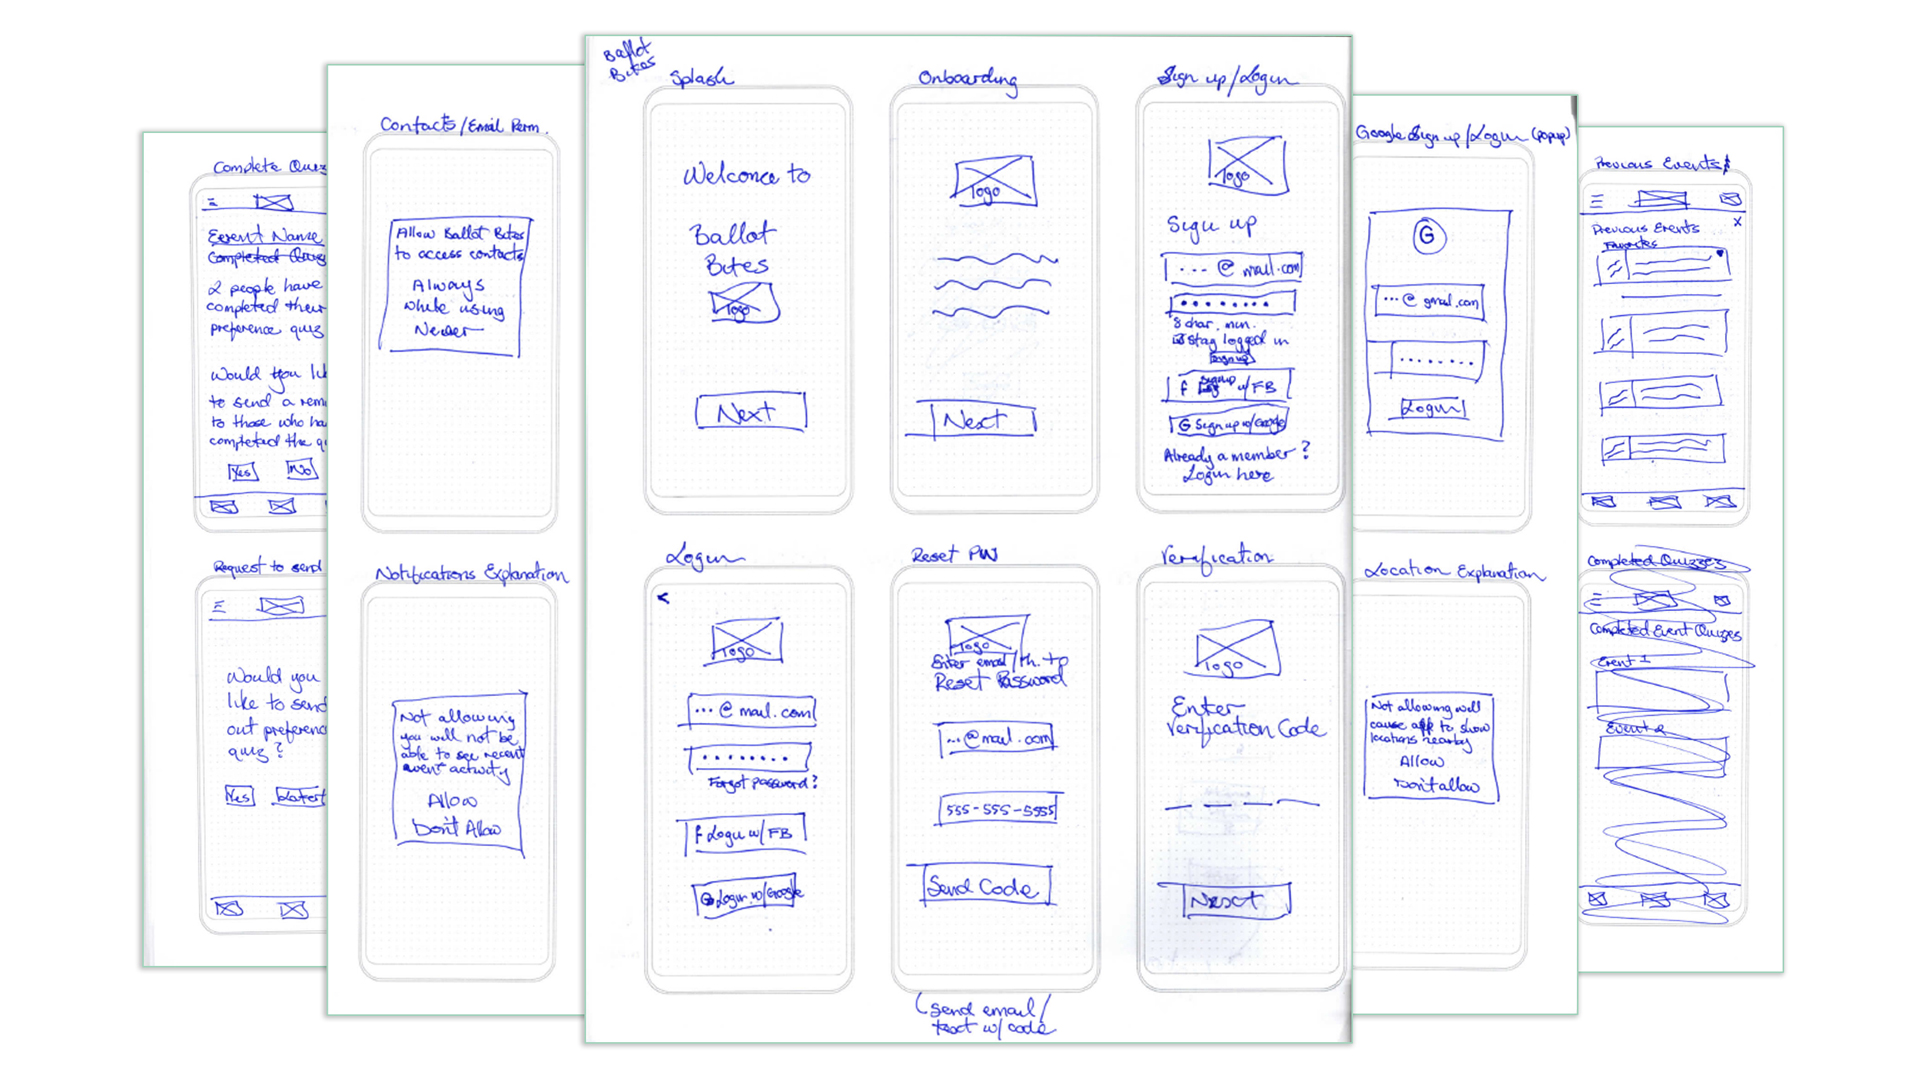 Complete Quiz
Event Name
Completed Quiz
2 people have
completed their
preference quiz
Would you
to send a
to those who
completed the
Yes No
Request to send
Would you
like to send
out
quiz?
Yes Later
Contacts/Email Perm.
Allow Ballot Bites
to access contacts
Always
While using
Never
Notifications Explanation
Not allowing
you will not be
able to see recent
event activity
Allow
Don't Allow
Ballot
Bites
Splash
Welcome to
Ballot
Bites
Logo
Next
Onboarding
Logo
Next
Sign up/Login
Logo
Sign up
...@mail.com
8 char. min.
stay logged in
Sign up
f Signup w/FB
G Sign up w/Google
Already a member?
Login here
Login
<
Logo
...@mail.com
Forgot password?
f Login w/FB
G Login w/Google
Reset PW
Logo
Enter email/ph. to
Reset Password
...@mail.com
555-555-5555
Send Code
(Send email/
text w/code
Verification
Logo
Enter
Verification Code
Next
Google Sign up/Login (popup)
G
...@gmail.com
Login
Location Explanation
Not allowing will
cause app to show
locations nearby
Allow
Don't allow
Previous Events
x
Previous Events
Favorites
Completed Quizzes
Completed Event Quizzes
Event 1
Event 2